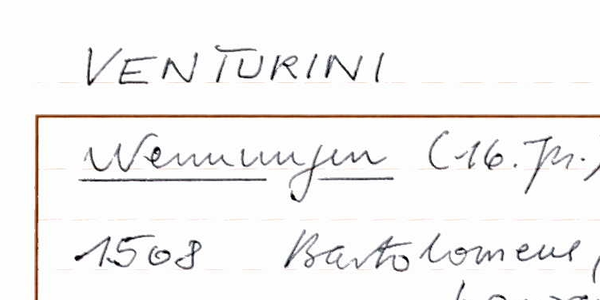 VENTURINI
Wennungen (16. Jh.)
1508 Bartolomeus,